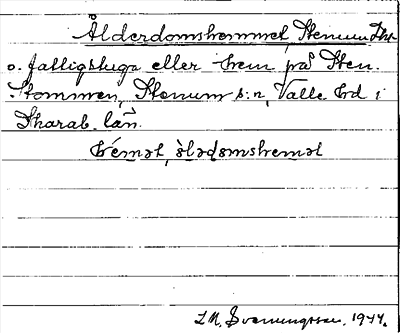 Ålderdomshemmet, Stenum
o. fattigstuga eller hem på Sten.
Stommen, Stenum s:n, Valle hd i
Skarab. län.
hémət, ålədomshemət
Svenungsson, 1944.